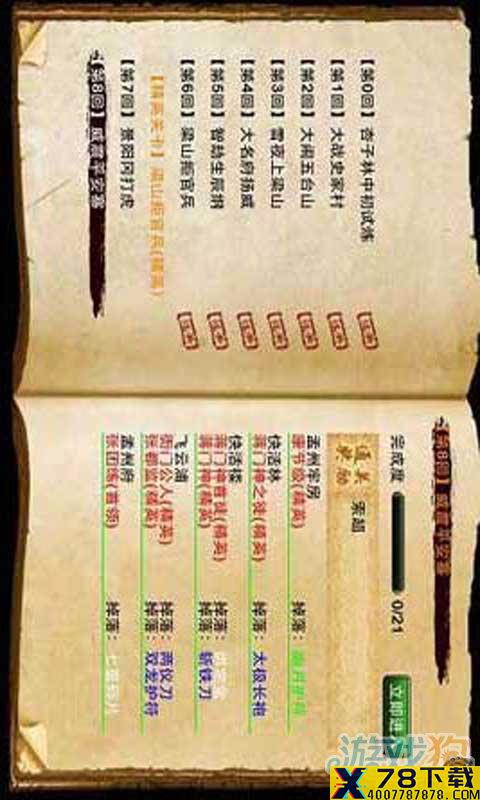 【第0回】杏子林中初试炼
【第1回】大战史家村
【第2回】大闹五台山
【第3回】雪夜上梁山
【第4回】大名府扬威
【第5回】智劫生辰纲
【第6回】梁山拒官兵
【精英关卡】梁山拒官兵(精英)
【第7回】景阳冈打虎
【第8回】威震平安寨
【第8回】威震平安寨
完成度
0/21
立即进
通关
奖励
索超
孟州牢房
康节级(精英)
掉落：
快活林
蒋门神之徒(精英)
掉落：太极长袍
快活楼
蒋门神首徒(精英)
掉落：
蒋门神(精英)
掉落：斩铁刀
飞云浦
衙门公人(精英)
掉落：两仪刀
张都监(精英)
掉落：双龙护符
孟州府
张团练(首领)
掉落：
游戏狗
78下载
4007787878.COM